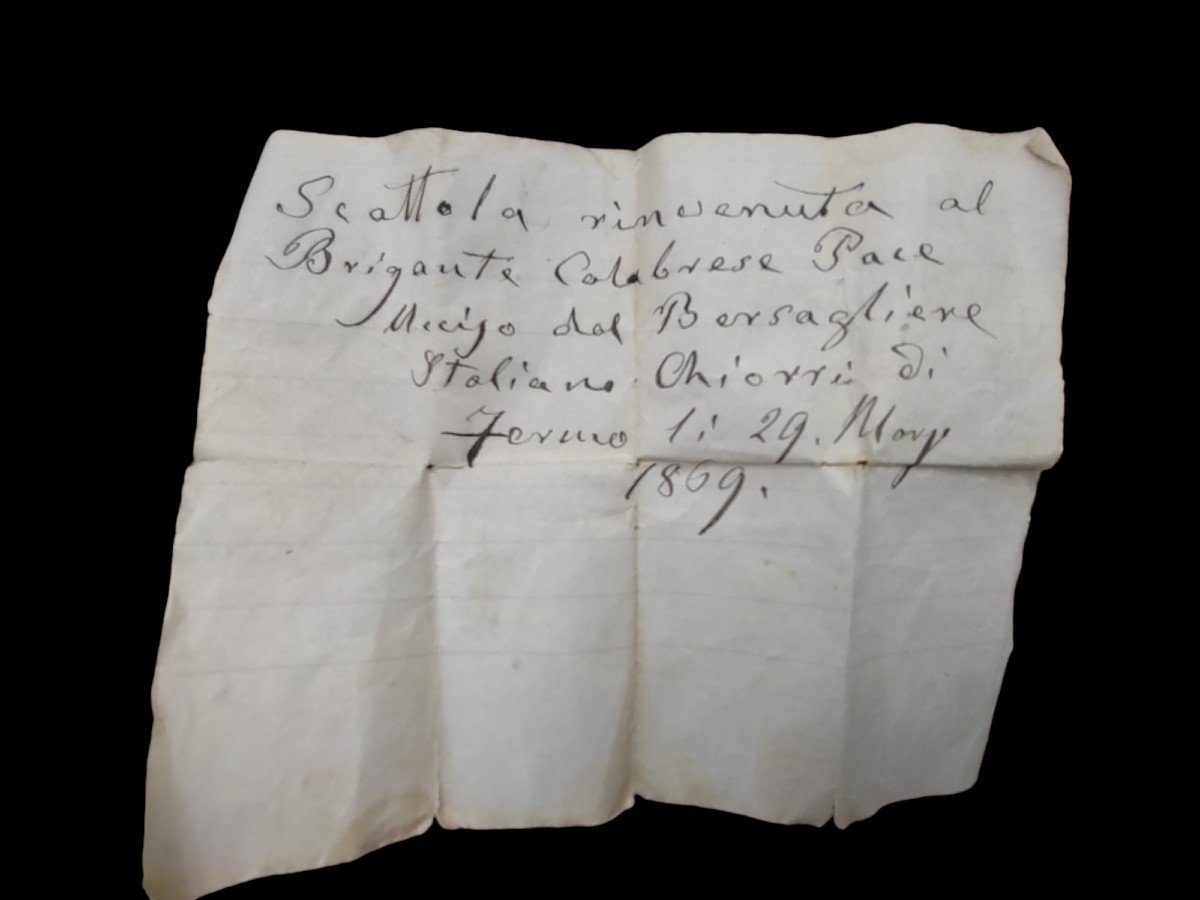 Scattola rinvenuta al
Brigante Calabrese Pace
Ucciso dal Bersagliere
Italiano Chiorri di
Fermo li 29. Marzo
1869.